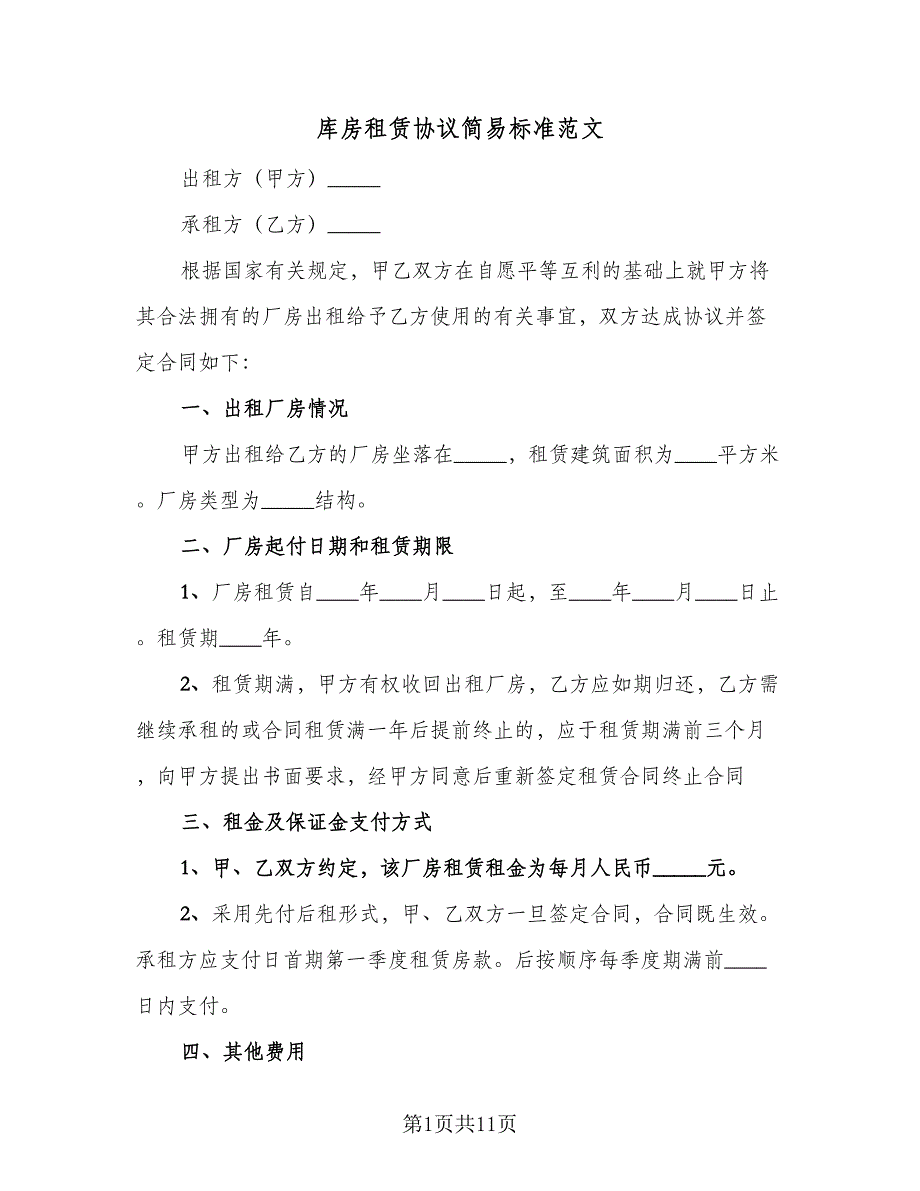 库房租赁协议简易标准范文
出租方（甲方）_____
承租方（乙方）_____
根据国家有关规定，甲乙双方在自愿平等互利的基础上就甲方将
其合法拥有的厂房出租给予乙方使用的有关事宜，双方达成协议并签
定合同如下：
一、出租厂房情况
甲方出租给乙方的厂房坐落在_____，租赁建筑面积为____平方米
。厂房类型为_____结构。
二、厂房起付日期和租赁期限
1、厂房租赁自____年____月____日起，至____年____月____日止
。租赁期____年。
2、租赁期满，甲方有权收回出租厂房，乙方应如期归还，乙方需
继续承租的或合同租赁满一年后提前终止的，应于租赁期满前三个月
，向甲方提出书面要求，经甲方同意后重新签定租赁合同终止合同
三、租金及保证金支付方式
1、甲、乙双方约定，该厂房租赁租金为每月人民币_____元。
2、采用先付后租形式，甲、乙双方一旦签定合同，合同既生效。
承租方应支付日首期第一季度租赁房款。后按顺序每季度期满前____
日内支付。
四、其他费用
第1页共11页